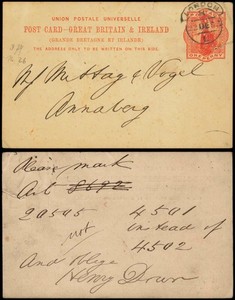 UNION POSTALE UNIVERSELLE
POST CARD-GREAT BRITAIN & IRELAND
(GRANDE BRETAGNE ET IRLANDE)
THE ADDRESS ONLY TO BE WRITTEN ON THIS SIDE.
LONDON
Mittag & Vogel
Annaberg
Please mark
Art 8682
20505 4501
not instead of
4502
And oblige
Henry